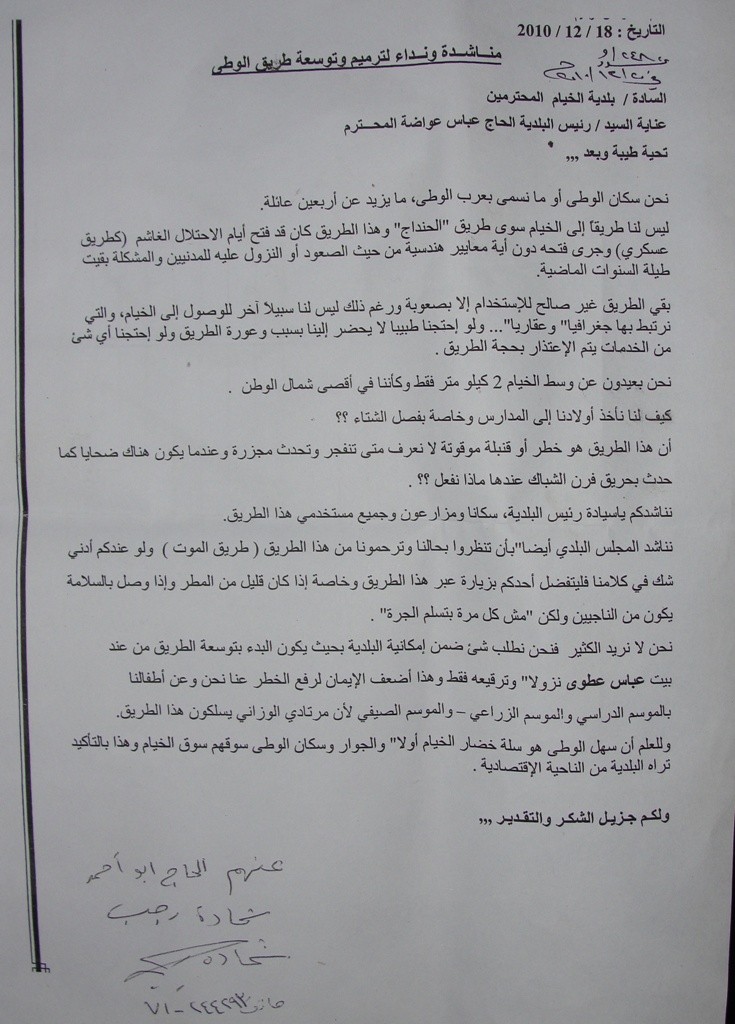 التاريخ : 18 / 12 / 2010
مناشدة ونداء لترميم وتوسعة طريق الوطى
السادة / بلدية الخيام المحترمين
عناية السيد / رئيس البلدية الحاج عباس عواضة المحترم
تحية طيبة وبعد ,,,
نحن سكان الوطى أو ما نسمى بعرب الوطى، ما يزيد عن أربعين عائلة.
ليس لنا طريقاً إلى الخيام سوى طريق "الحنداج" وهذا الطريق كان قد فتح أيام الاحتلال الغاشم (كطريق
عسكري) وجرى فتحه دون أية معايير هندسية من حيث الصعود أو النزول عليه للمدنيين والمشكلة بقيت
طيلة السنوات الماضية.
بقي الطريق غير صالح للإستخدام إلا بصعوبة ورغم ذلك ليس لنا سبيلا آخر للوصول إلى الخيام، والتي
نرتبط بها جغرافيا" وعقاريا"... ولو إحتجنا طبيبا لا يحضر إلينا بسبب وعورة الطريق ولو إحتجنا أي شئ
من الخدمات يتم الإعتذار بحجة الطريق .
نحن بعيدون عن وسط الخيام 2 كيلو متر فقط وكأننا في أقصى شمال الوطن .
كيف لنا نأخذ أولادنا إلى المدارس وخاصة بفصل الشتاء ؟؟
أن هذا الطريق هو خطر أو قنبلة موقوتة لا نعرف متى تنفجر وتحدث مجزرة وعندما يكون هناك ضحايا كما
حدث بحريق فرن الشباك عندها ماذا نفعل ؟؟ .
نناشدكم ياسيادة رئيس البلدية، سكانا ومزارعون وجميع مستخدمي هذا الطريق.
نناشد المجلس البلدي أيضا"بأن تنظروا بحالنا وترحمونا من هذا الطريق ( طريق الموت ) ولو عندكم أدني
شك في كلامنا فليتفضل أحدكم بزيارة عبر هذا الطريق وخاصة إذا كان قليل من المطر وإذا وصل بالسلامة
يكون من الناجيين ولكن "مش كل مرة بتسلم الجرة" .
نحن لا نريد الكثير فنحن نطلب شئ ضمن إمكانية البلدية بحيث يكون البدء بتوسعة الطريق من عند
بيت عباس عطوى نزولا" وترقيعه فقط وهذا أضعف الإيمان لرفع الخطر عنا نحن وعن أطفالنا
بالموسم الدراسي والموسم الزراعي – والموسم الصيفي لأن مرتادي الوزاني يسلكون هذا الطريق.
وللعلم أن سهل الوطى هو سلة خضار الخيام أولا" والجوار وسكان الوطى سوقهم سوق الخيام وهذا بالتأكيد
تراه البلدية من الناحية الإقتصادية .
ولكم جزيل الشكر والتقدير ,,,
عنهم الحاج ابو أحمد
شحادة رجب
شحاده
٧١ - ٢٤٤٢٩٣